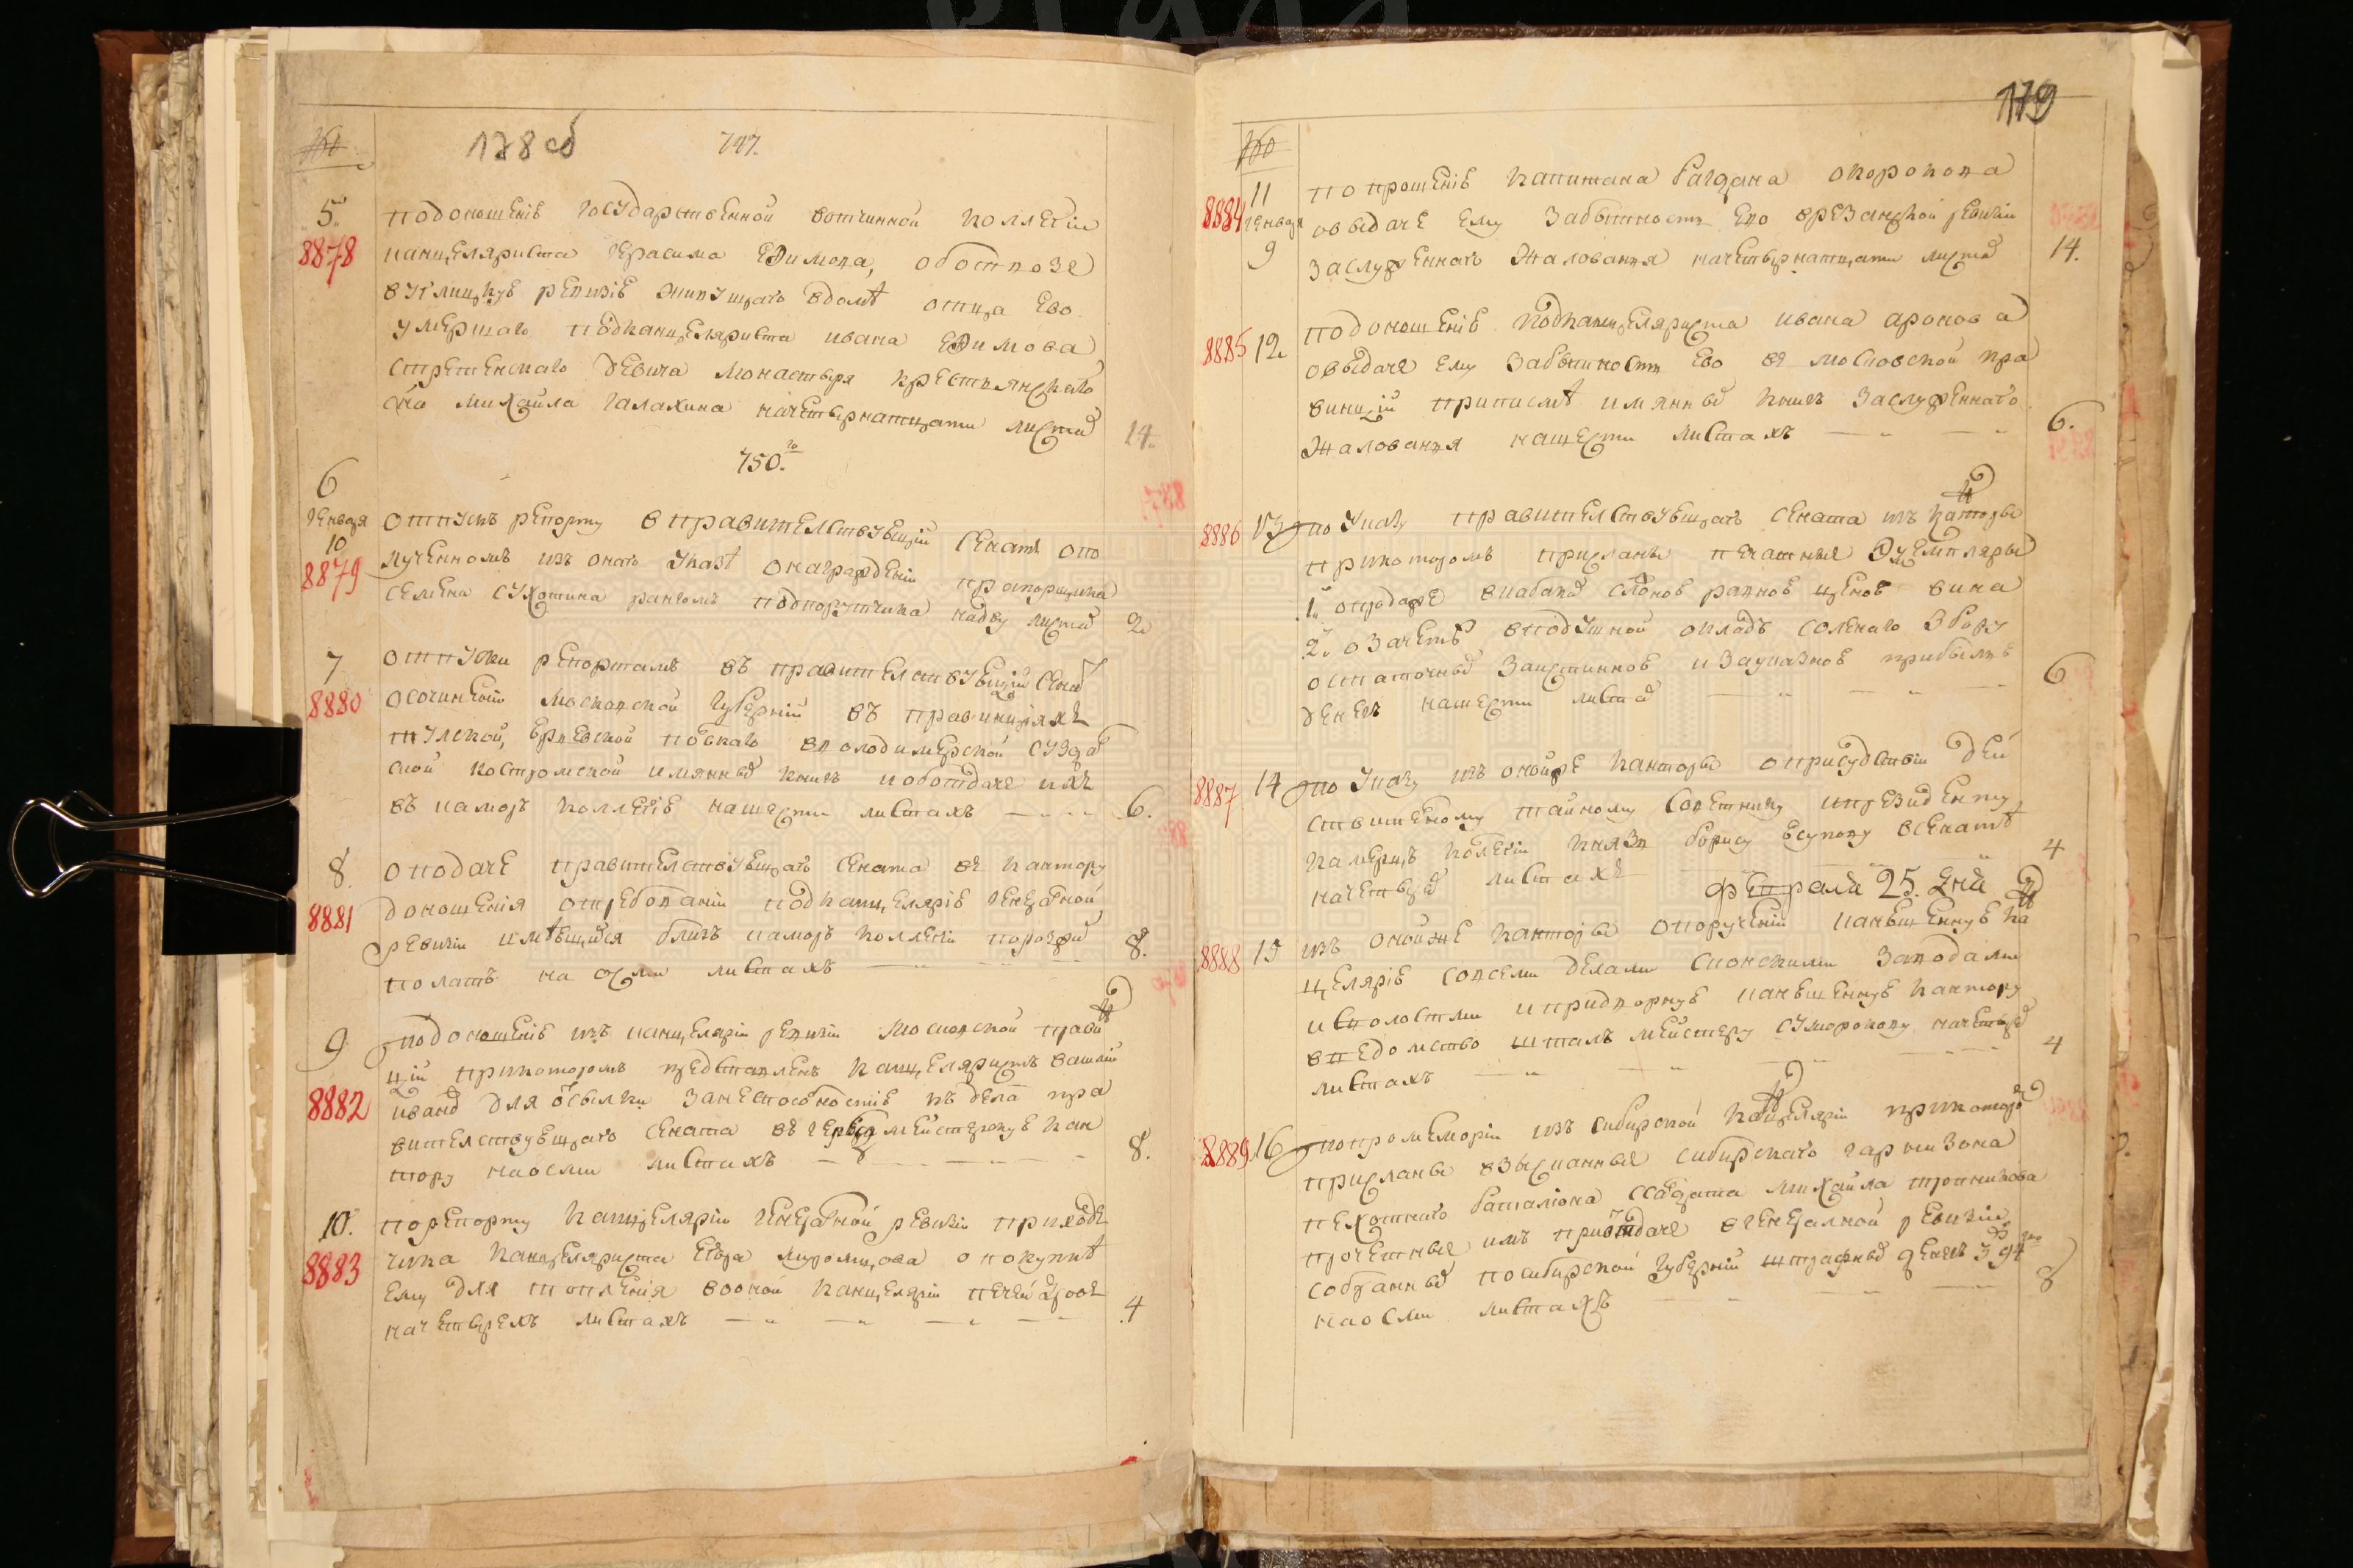 178 об
747.
5.
8878
по доношениѣ государственной вотчинной коллегіи
канцеляриста герасима ефимова, о бостпозе
в углицкуѣ ревизіѣ живущаго в домѣ отца ево
умершаго подканцеляриста ивана ефимова
стретенского девича монастыря крестьянскаго
сна михайла галахина на четырнатцати листах
14.
750.го
6
генваря
10
8879
отпускъ репорту в правителствуѣщіи сенатъ о по
лученномъ изъ онаго указѣ о награждѣніи прапорщика
семена сухотина рангомъ подпорутчика на дву листах
2
7
8880
отпуски репортамъ въ правителствуѣщіи сенат
о сочинениі московской губерніи въ правинціяхъ
тулской, юрьевской по въ володимерской сузда
ской костромской имянных книгъ и об отдаче ихъ
въ каморъ коллегиѣ на шести листахъ
6.
8.
8881
о подаче правителствуѣщаго сената въ кантору
доношения о требованіи под канцеляриѣ генералной
ревизіи имѣѣщихся близъ каморъ коллегіи порозжих
полатъ на осми листахъ
8.
9
8882
по доношениѣ изъ канцеляріи ревизіи московской правин
ціи при которомъ представленъ канцеляристъ василий
иванов для отсылки за неспособностиѣ къ делам пра
вителствуѣщаго сената въ герольдмейстерскуѣ кан
тору на осми листахъ
8.
10.
8883
по репорту канцеляріи генералной ревизіи приходо
чика канцеляриста егора муромцова о покупкѣ
ему для топления в оной канцеляріи печей дровъ
на четырехъ листахъ
4
179
8884
11
генваря
9
по прошениѣ капитана багдана скорокова
о выдаче ему за бытность ево в резанской ревизіи
заслуженнаго жалованья на четырнатцати листах
14.
8885
12
по доношениѣ подканцеляриста ивана аронова
о выдаче ему за бытность ево въ московской пра
винціи при писмѣ имянных книгъ заслуженнаго
жалованья на шести листахъ
6.
8886
13
по указу правителствуѣщаго сената изъ канторы
при котором присланы печатныя экземпляры
1. о продаже в кабаках с онов равнов ценов вина
2. о зачетѣ в подушной окладъ соленаго збору
остаточных за истинноѣ и за указноѣ прибылѣ
денегъ на шести листах
6
8887
14
по указу изъ оной же канторы о присудствіи дей
ствителному тайному советнику и президенту
камерцъ колегіи князь борису юсупову в сенатѣ
на четырех листахъ
4
февраля 25. дня
8888
15
изъ оной же канторы о поручениі канюшеннуѣ кан
целяриѣ со всеми делами с конскими заводами
и волостми и придворнуѣ канюшеннуѣ кантору
в ведомство шталъ мейстеру сумарокову на четырех
листахъ
4
8889
16
по промеморіи изъ сибирской канцеляріи при которой
присланы взысканныя сибирскаго гарнизона
пехотнаго баталіона салдата михайла тропникова
прочетныя имъ при отдаче в генералной ревизіи
собранных по сибирской губерніи штрафных денегъ 394
на осми листахъ
8